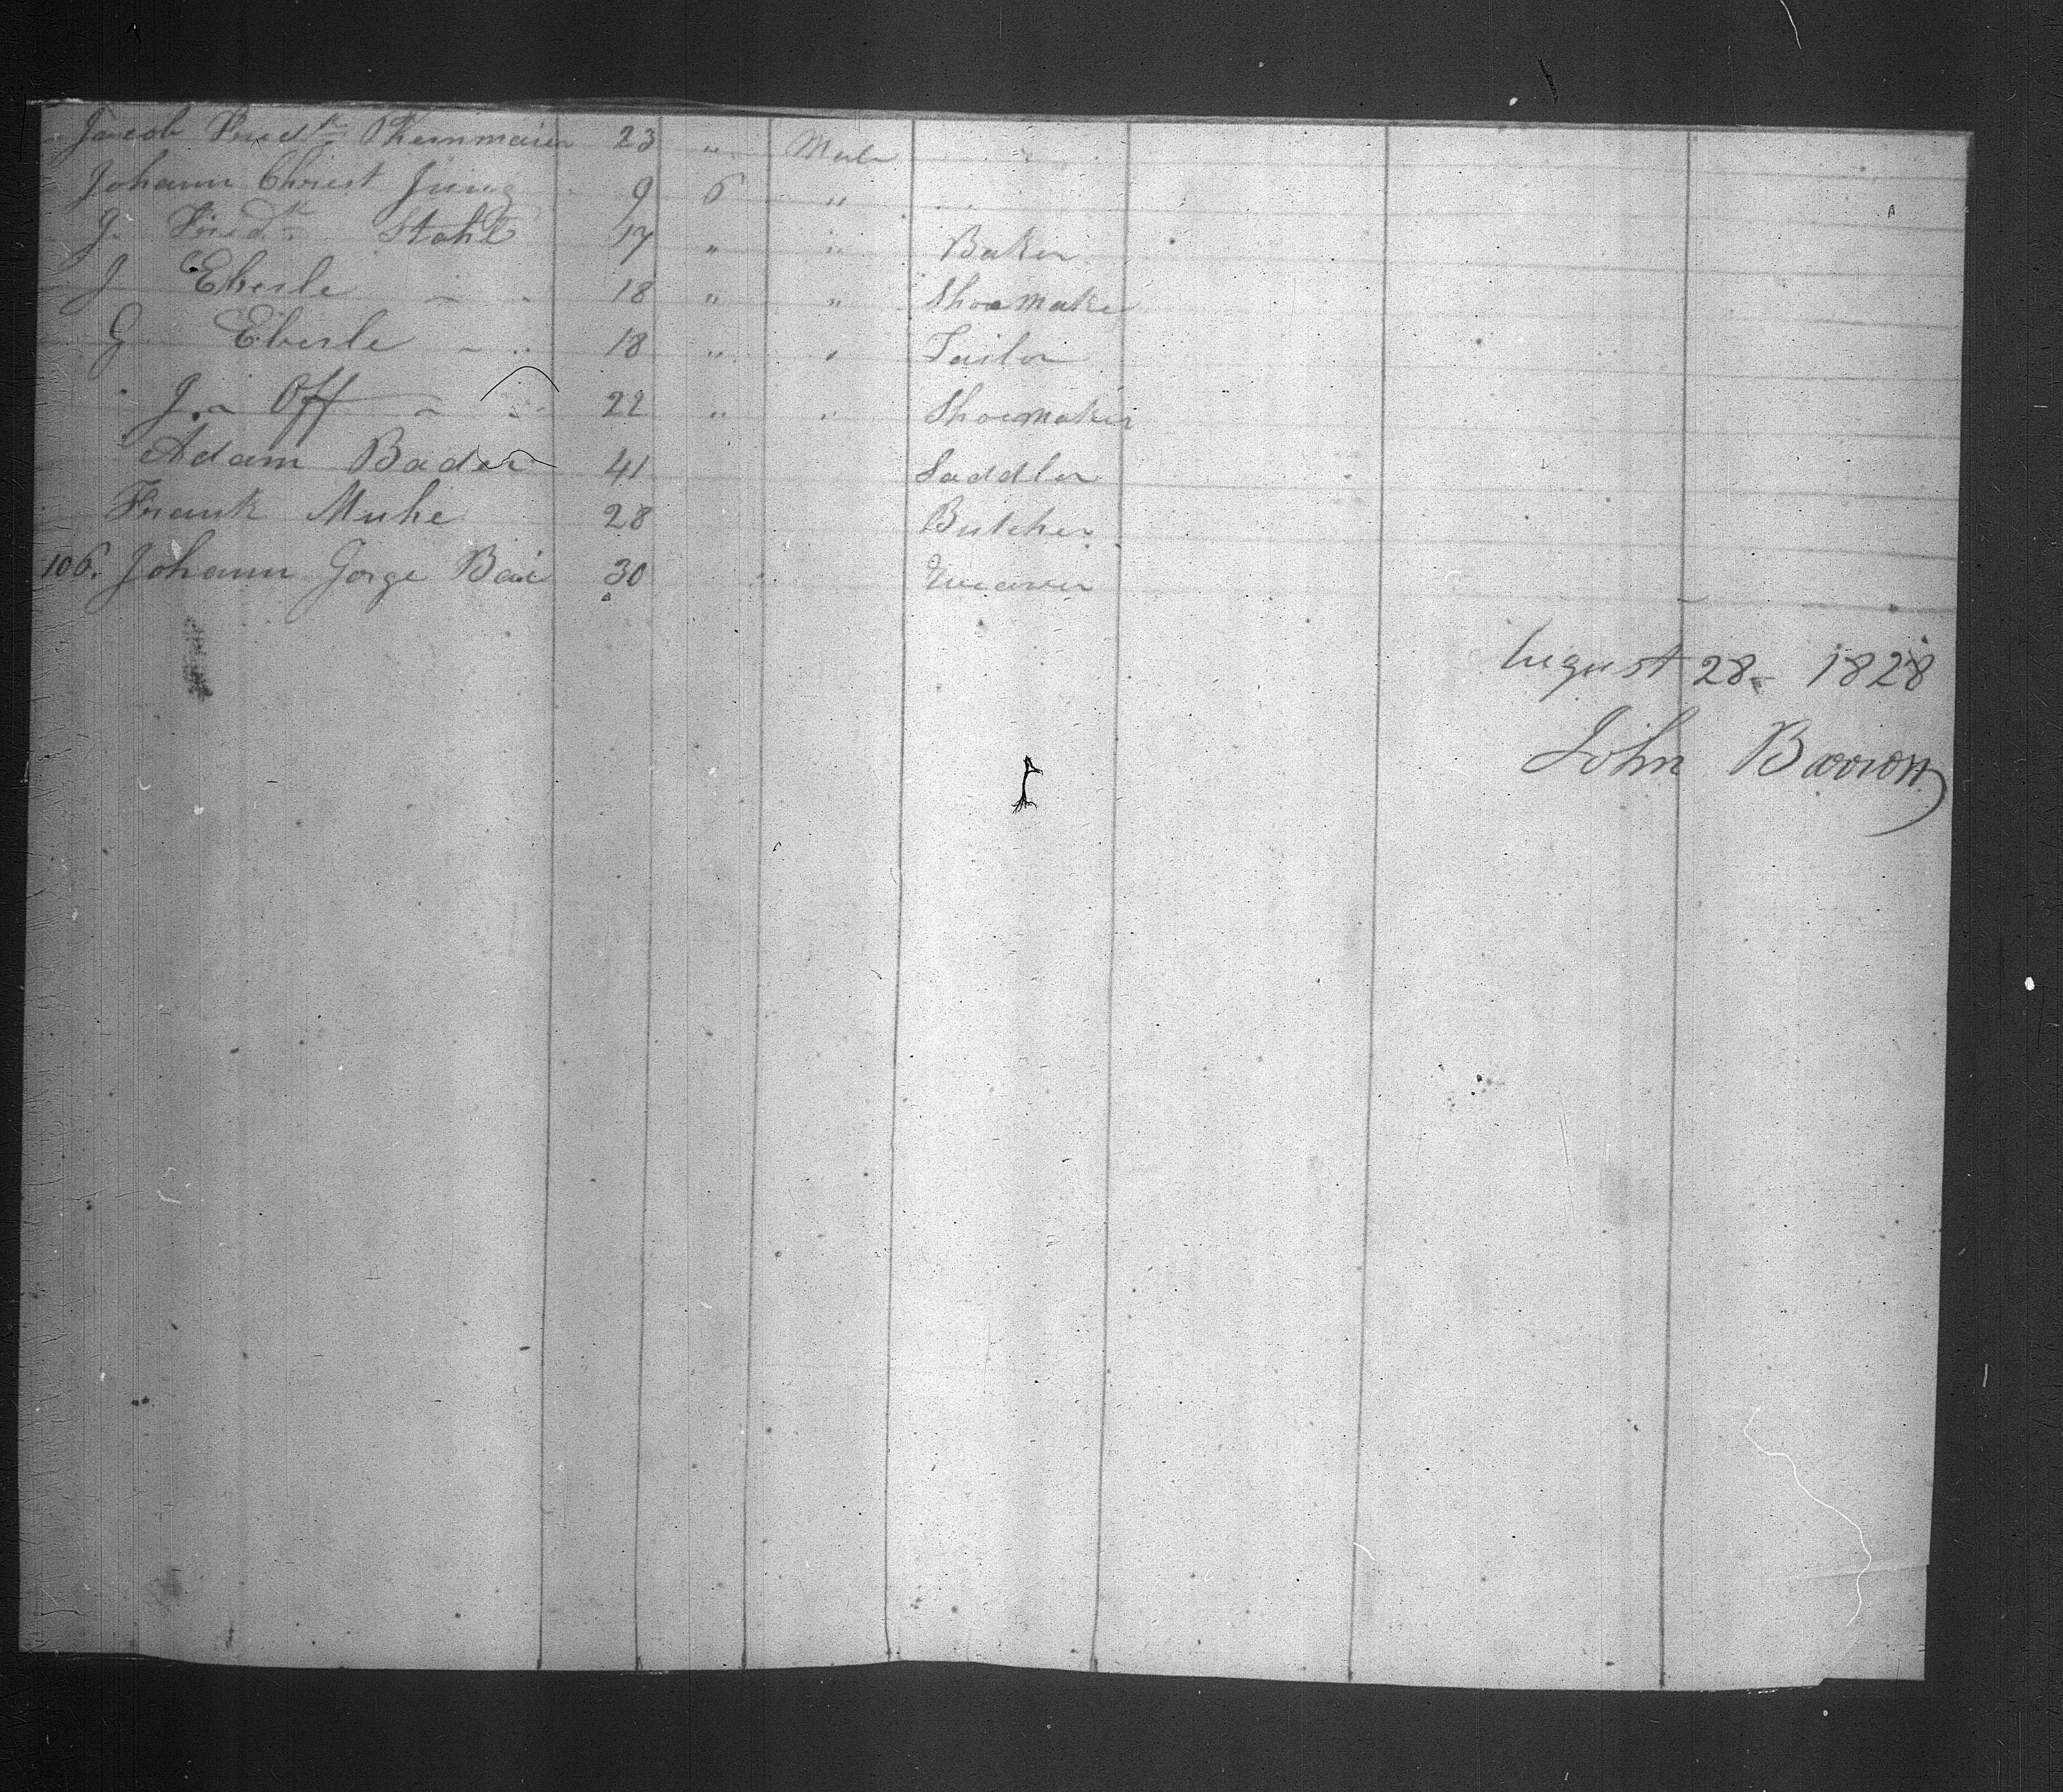 Jacob Fried^k Phemmaier 23 " Male
Johann Christ Jung 9 6 "
J. Fried^k Stahl 17 " " Baker
J Eberle 18 " " Shoemaker
G Eberle 18 " " Tailor
J. Off 22 " " Shoemaker
Adam Bader 41 Saddler
Frank Muhe 28 Butcher
106. Johann Gorge Bai 30
August 28 - 1828
John Barron